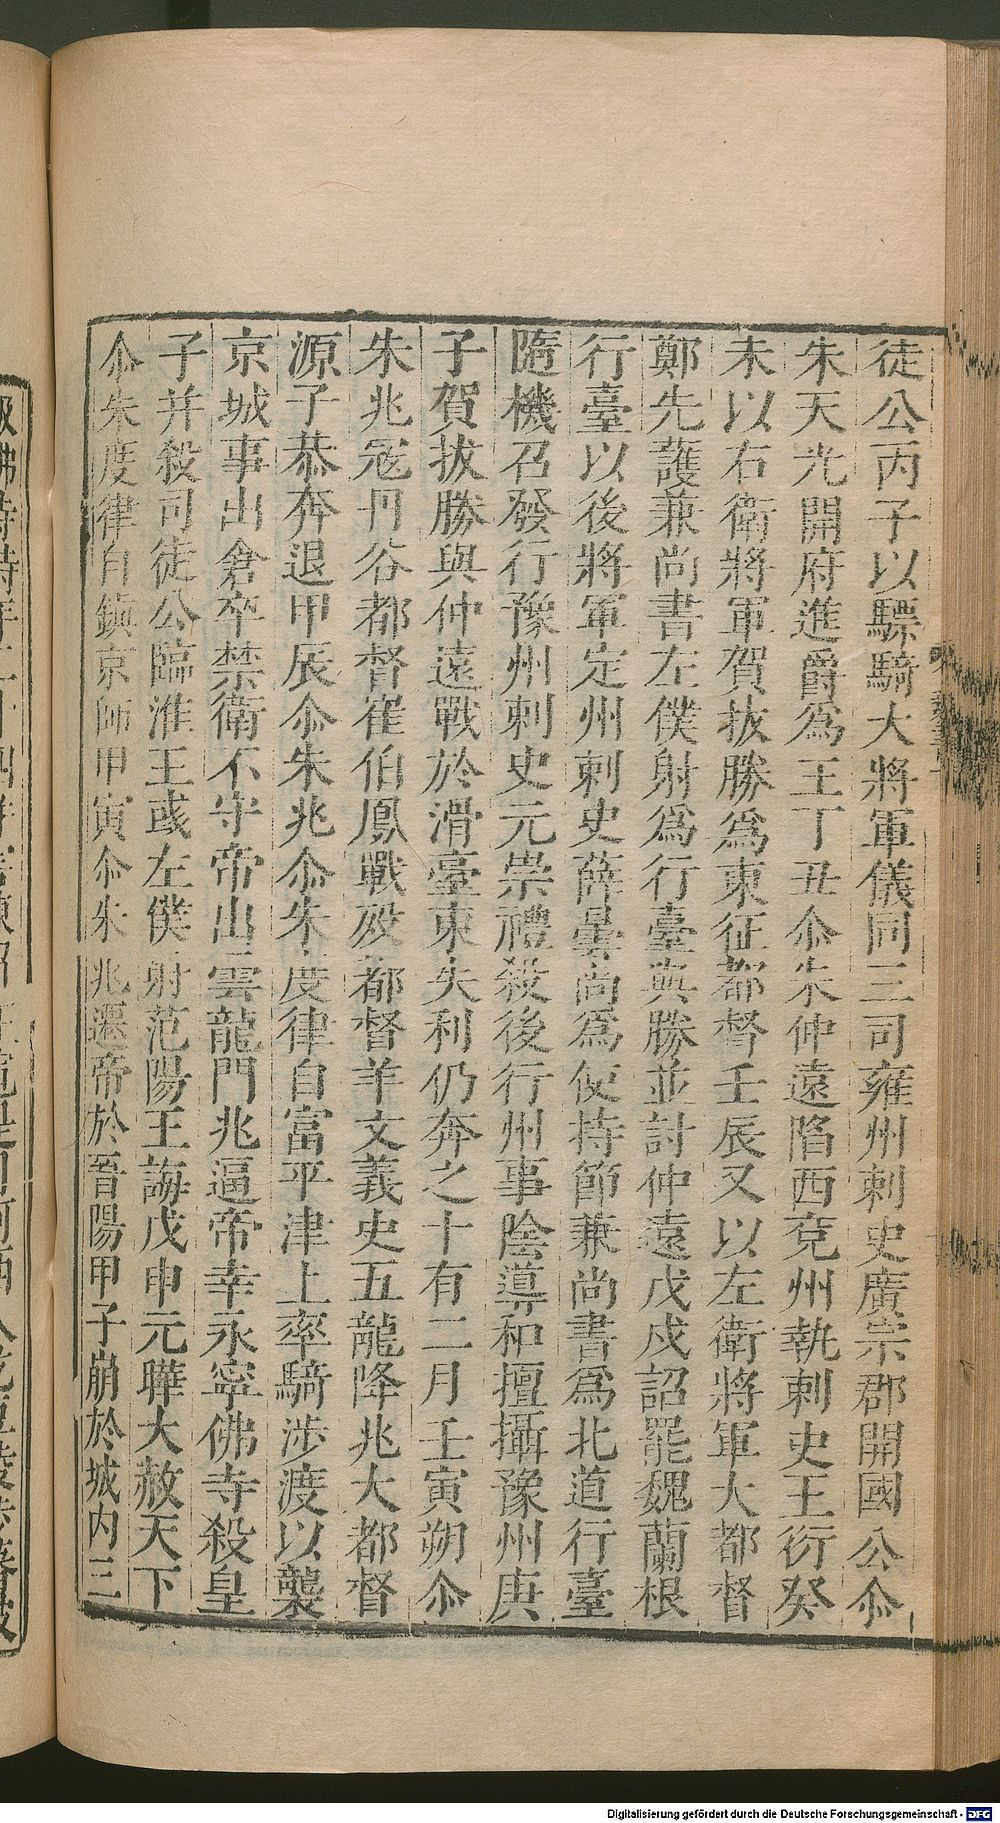 徒公丙子以驃騎大將軍儀同三司雍州刺史廣宗郡開國公尒
朱天光開府進爵爲王丁丑尒朱仲遠陷西兗州執刺史王衍癸
未以右衛將軍賀拔勝爲東征都督壬辰又以左衛將軍大都督
鄭先護兼尚書左僕射爲行臺與勝並討仲遠戊戌詔罷魏蘭根
行臺以後將軍定州刺史薛曇尚爲使持節兼尚書爲北道行臺
隨機召發行豫州刺史元崇禮殺後行州事陰導和擅攝豫州庚
子賀拔勝與仲遠戰於滑臺東失利仍奔之十有二月壬寅朔尒
朱兆寇丹谷都督崔伯鳳戰歿都督羊文義史五龍降兆大都督
源子恭奔退甲辰尒朱兆尒朱度律自富平津上率騎涉渡以襲
京城事出倉卒禁衛不守帝出雲龍門兆逼帝幸永寧佛寺殺皇
子并殺司徒公臨淮王彧左僕射范陽王誨戊申元曄大赦天下
尒朱度律自鎮京師甲寅尒朱兆遷帝於晉陽甲子崩於城內三
Digitalisierung gefördert durch die Deutsche Forschungsgemeinschaft - DFG